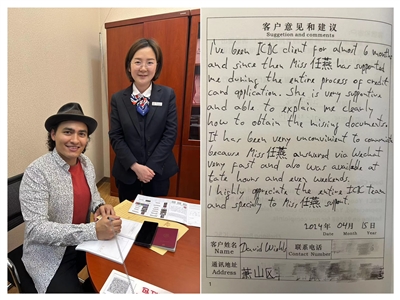 客户意见和建议
Suggestion and comments
I've been ICBC client for almost 6 months
and since then Miss 任燕 has supported
me during the entire process of credit
card application. She is very supportive
and able to explain me clearly
how to obtain the missing documents.
It has been very unconvinient to comunicate
because Miss 任燕 answared via Wechat
very fast and also was available at
late hours and even weekends.
I highly appreciate the entire ICBC team
and specially to Miss 任燕 support.
2024 年 04 月 15 日
Year Month Day
客户姓名
Name
David
联系电话
Contact Number
通讯地址
Address
萧山区
1